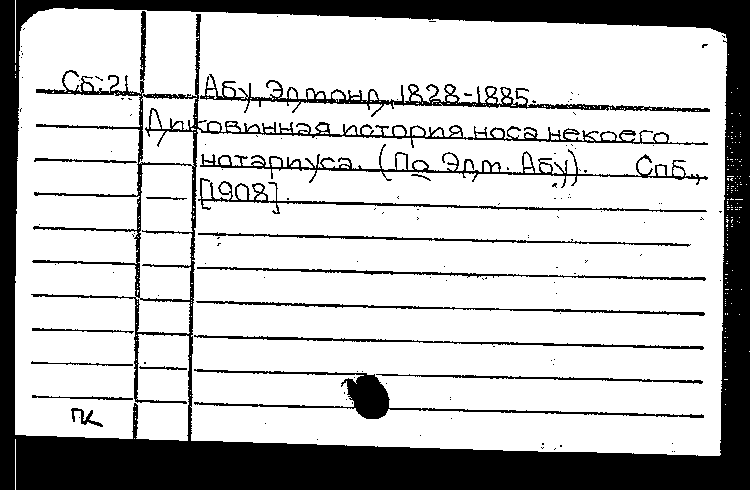 Сб:21 Абу, Эдмонд, 1828-1885.
Диковинная история носа некоего
нотариуса. (По Эдм. Абу). Спб.,
[1908].
ПК